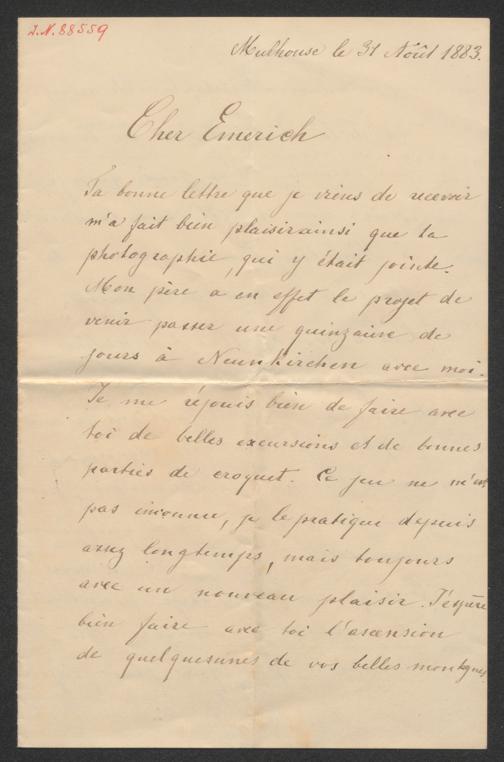 J.N. 88559
Mulhouse le 31 Août 1883.
Cher Emerich
Ta bonne lettre que je viens de recevoir
m'a fait bien plaisir ainsi que ta
photographie, qui y était jointe.
Mon père a en effet le projet de
venir passer une quinzaine de
jours à Neunkirchen avec moi.
Je me réjouis bien de faire avec
toi de belles excursions et de bonnes
parties de croquet. Ce jeu ne m'est
pas inconnu, je le pratique depuis
assez longtemps, mais toujours
avec un nouveau plaisir. J'espère
bien faire avec toi l'ascension
de quelquesunes de vos belles montagnes